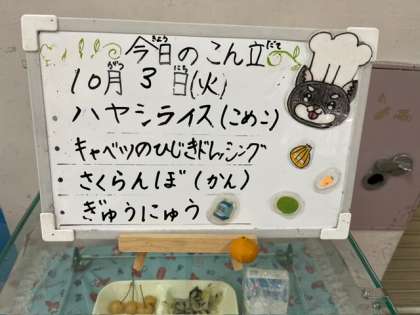 今日のこん立
きょう だて
10月3日(火)
がつ にち
ハヤシライス(こめこ)
・キャベツのひじきドレッシング
・さくらんぼ(かん)
・ぎゅうにゅう